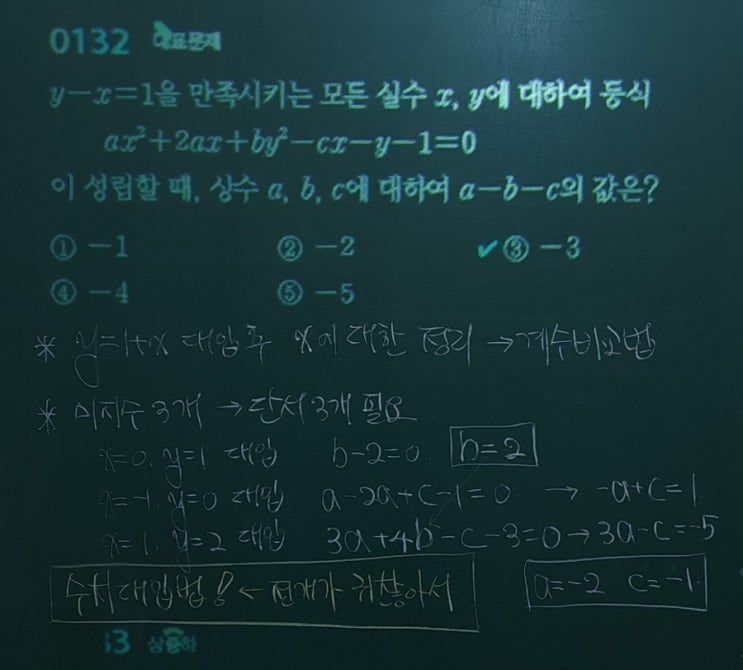 0132 대표문제
y-x=1을 만족시키는 모든 실수 x, y에 대하여 등식
ax²+2ax+by²-cx-y-1=0
이 성립할 때, 상수 a, b, c에 대하여 a-b-c의 값은?
① -1 ② -2 ✔③ -3
④ -4 ⑤ -5
* y=1+x 대입 후 x에 대한 정리 → 계수비교법
* 미지수 3개 → 단서 3개 필요
x=0, y=1 대입 b-2=0 b=2
x=-1, y=0 대입 a-2a+c-1=0 → -a+c=1
x=1, y=2 대입 3a+4b-c-3=0 → 3a-c=-5
수치대입법! ← 전개가 귀찮아서 a=-2 c=-1
33 상중하